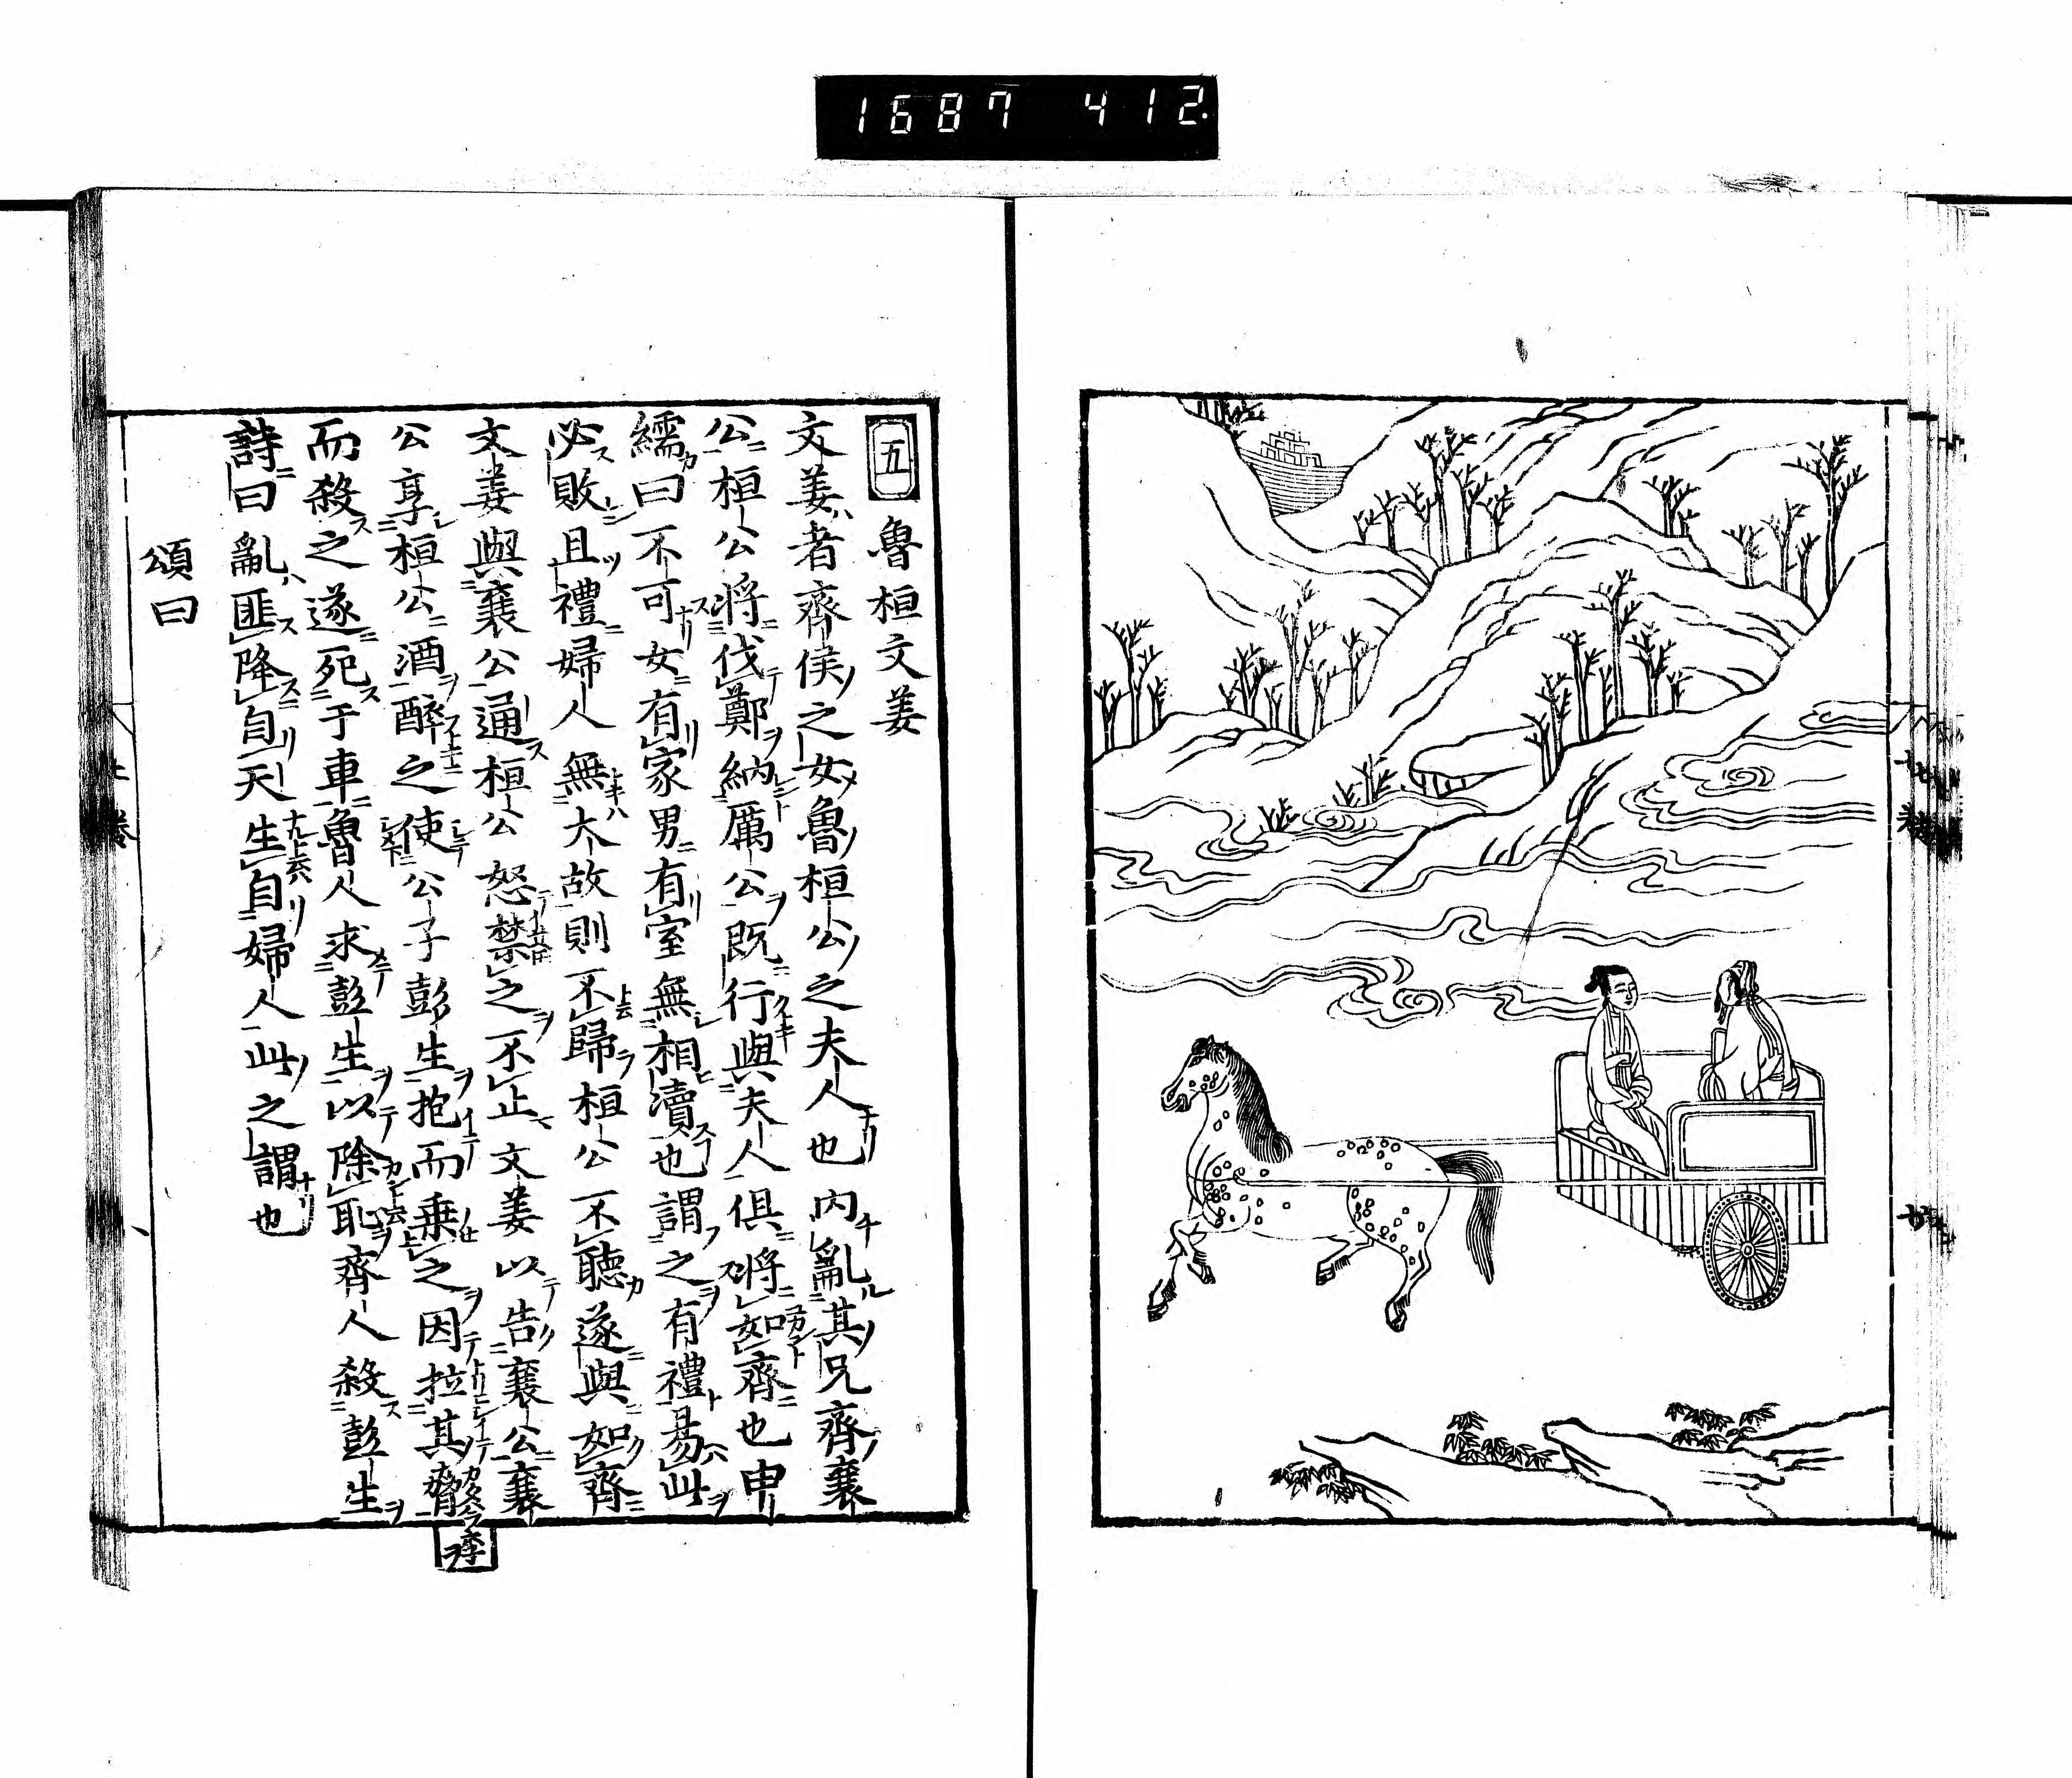 1687 412.
五 魯桓文姜
文姜者齊侯之女魯桓公之夫人也內亂其兄齊襄
公桓公將伐鄭納厲公既行與夫人俱將如齊也申
繻曰不可女有家男有室無相瀆也謂之有禮易此
必敗且禮婦人無大故則不歸桓公不聽遂與如齊
文姜與襄公通桓公怒禁之不止文姜以告襄公襄
公享桓公酒醉之使公子彭生抱而乗之因拉其脅
而殺之遂死于車魯人求彭生以除恥齊人殺彭生
詩曰亂匪降自天生自婦人此之謂也
頌曰